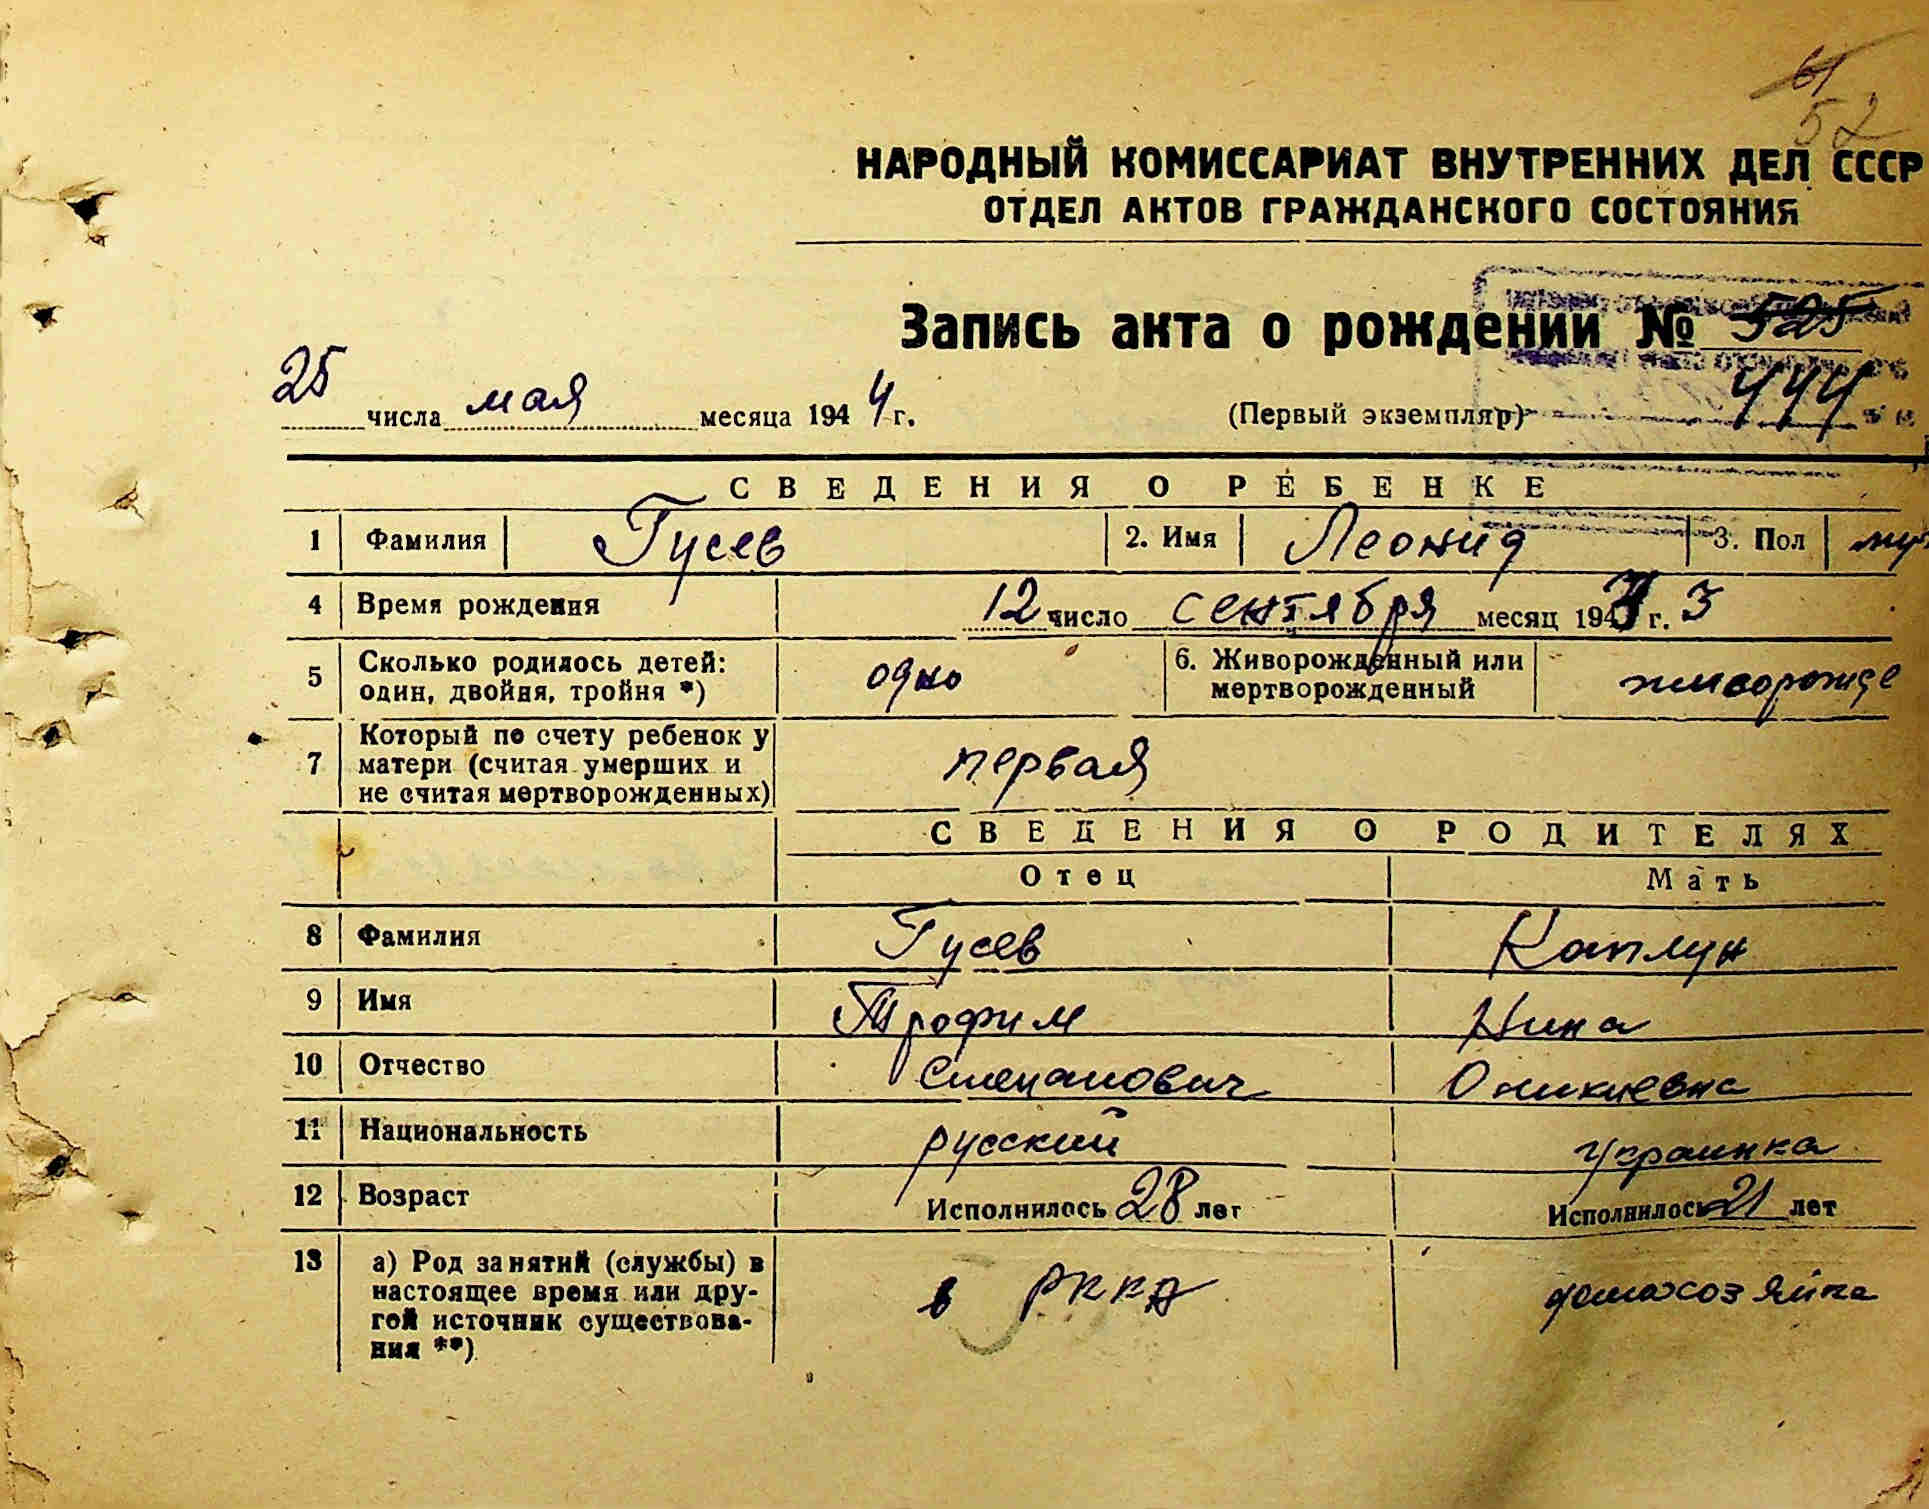 61
52
НАРОДНЫЙ КОМИССАРИАТ ВНУТРЕННИХ ДЕЛ СССР
ОТДЕЛ АКТОВ ГРАЖДАНСКОГО СОСТОЯНИЯ
Запись акта о рождении № 525
25 числа мая месяца 1944 г. (Первый экземпляр) 444
СВЕДЕНИЯ О РЕБЕНКЕ
1 Фамилия Гусев 2. Имя Леонид 3. Пол муж
4 Время рождения 12 число сентября месяц 194 г. 3
5 Сколько родилось детей: один, двойня, тройня *) одно 6. Живорожденный или мертворожденный живорожде
7 Который по счету ребенок у матери (считая умерших и не считая мертворожденных) первая
СВЕДЕНИЯ О РОДИТЕЛЯХ
Отец Мать
8 Фамилия Гусев Каплун
9 Имя Трофим Нина
10 Отчество Степанович Оникиевна
11 Национальность русский украинка
12 Возраст Исполнилось 28 лет Исполнилось 21 лет
13 а) Род занятий (службы) в настоящее время или другой источник существования **) в РККА домахозяйка